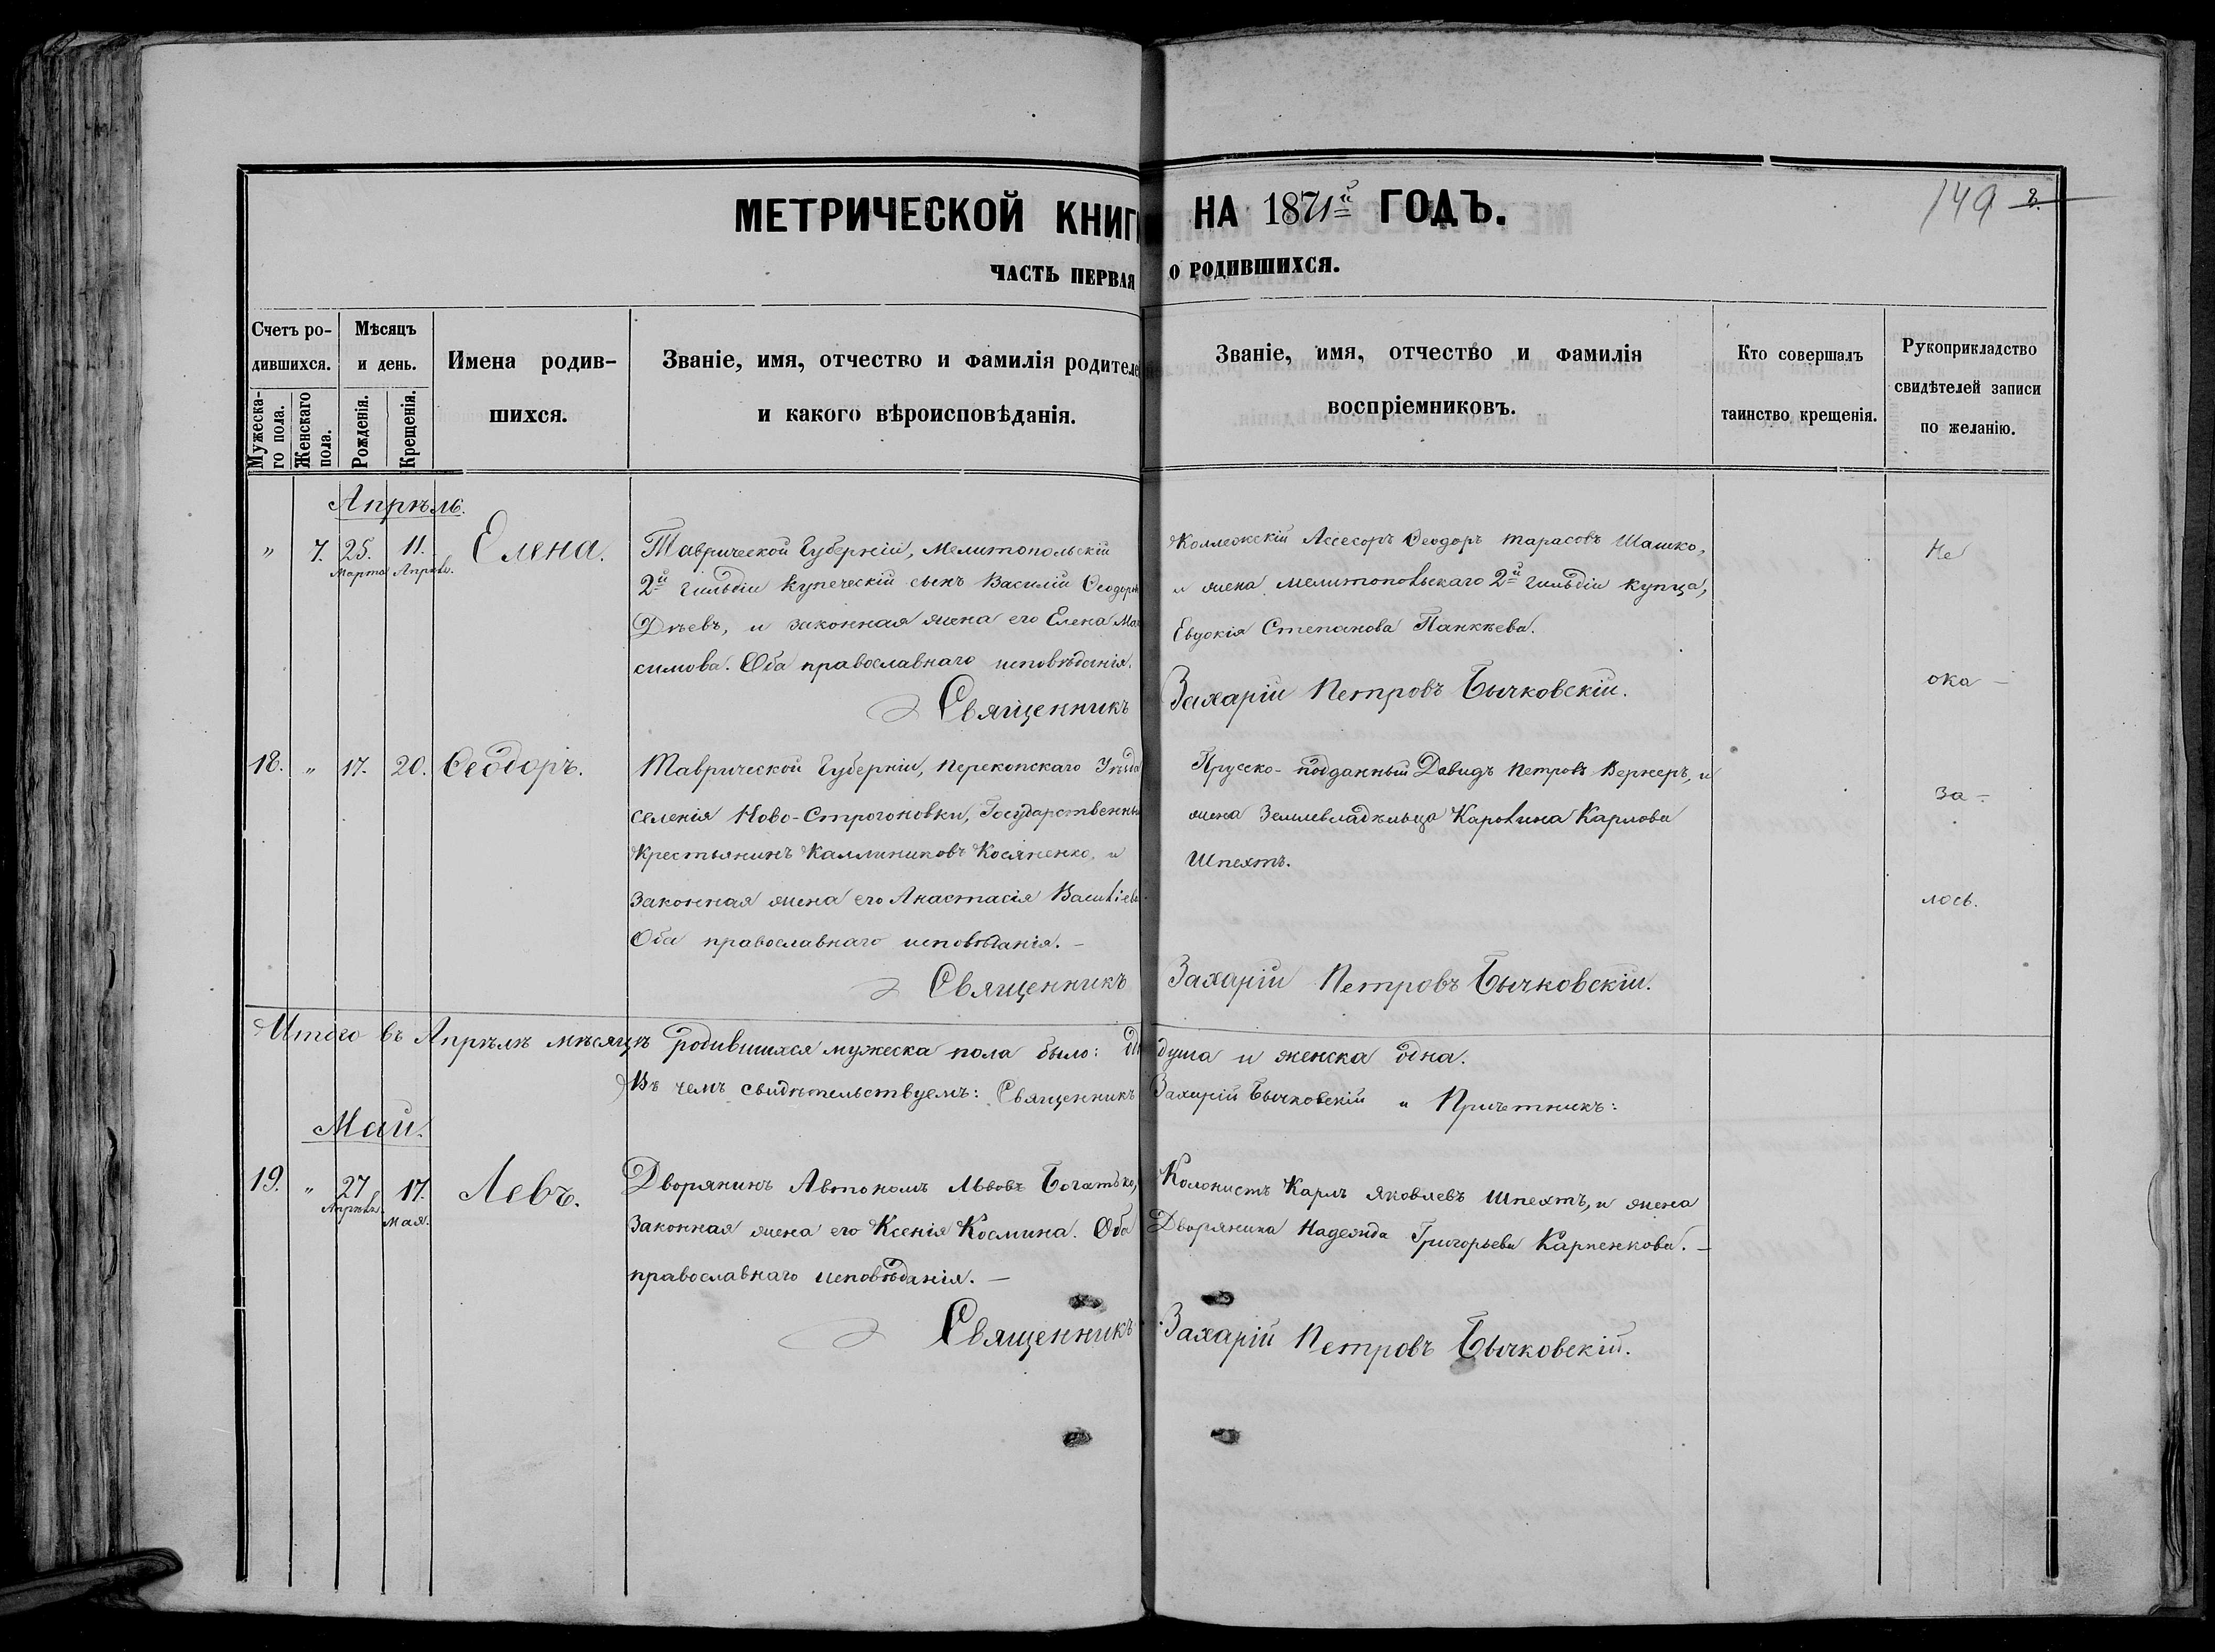 МЕТРИЧЕСКОЙ КНИГИ НА 1871й ГОДЪ.
149 8.
ЧАСТЬ ПЕРВАЯ О РОДИВШИХСЯ.
Счетъ родившихся.
Мужеска-го пола.
Женскаго пола.
Мѣсяцъ и день.
Рожденія.
Крещенія.
Имена родив-
шихся.
Званіе, имя, отчество и фамилія родителе
и какого вѣроисповѣданія.
Званіе, имя, отчество и фамилія
воспріемниковъ.
Кто совершалъ
таинство крещенія.
Рукоприкладство
свидѣтелей записи
по желанію.
Апрѣль.
" 7. 25. Марта 11. Апрѣл. Елена.
Таврической Губерніи, Мелитопольскій
2й гильдіи купеческій сынъ Василій Ѳеодоров
Дѣевъ, и законная жена его Елена Мак
симова. Оба православнаго исповѣданія.
Священникъ Захарій Петровъ Бычковскій.
Коллежскій Ассесоръ Ѳеодоръ Тарасовъ Шашко,
и жена Мелитопольскаго 2й гильдіи купца,
Евдокія Степанова Панкѣева.
Не
ока-
за-
лось.
18. " 17. 20. Ѳеодоръ.
Таврической Губерніи, Перекопскаго Уѣзда
селенія Ново-Строгоновки, Государственны
Крестьянинъ Каллиниковъ Косяненко, и
законная жена его Анастасія Василіева
Оба православнаго исповѣданія. -
Священникъ Захарій Петровъ Бычковскій.
Прусско-подданный Давидъ Петровъ Вернеръ, и
жена Землевладѣльца Каролина Карлова
Шпехтъ.
Итого въ Апрѣлѣ мѣсяцѣ родившихся мужеска пола было: душа и женска одна.
Въ чемъ свидѣтельствуемъ: Священникъ Захарій Бычковскій и Причетникъ:
Май.
19. " 27 Апрѣля. 17. Мая. Левъ.
Дворянинъ Автономъ Львовъ Богатько,
законная жена его Ксенія Космина. Оба
православнаго исповѣданія. -
Священникъ Захарій Петровъ Бычковскій.
Колонистъ Карлъ Яковлевъ Шпехтъ, и жена
Дворянина Надежда Григорьева Карпенкова. -